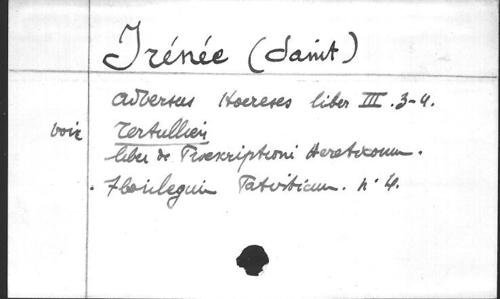 Irénée (Saint)
adversus Haereses liber III. 3-4.
voir Tertullien
liber de Praescriptioni Hereticorum.
. Florilegium Patristicum. n° 4.